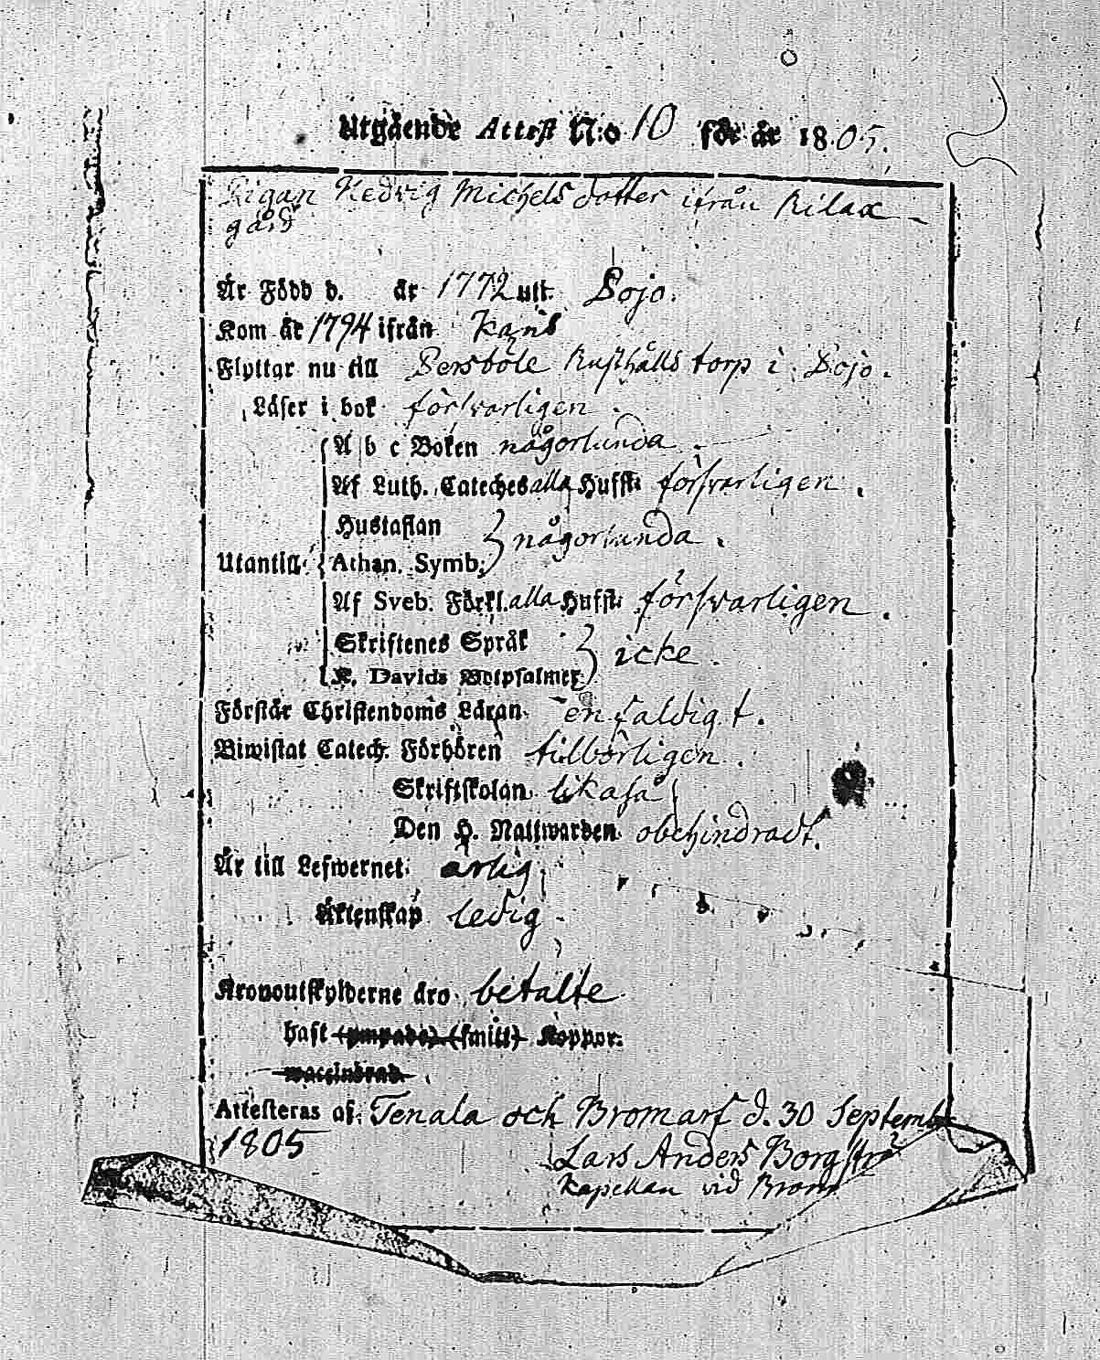 Utgående Attest N:o 10 för år 1805.
Pigan Hedvig Michels dotter ifrån Rilax
gård
Är Född d. år 1772 uti Lojo.
Kom år 1794 ifrån Karis
Flyttar nu till Persböle Rusthålls torp i Lojo.
Läser i bok försvarligen.
A b c Boken någorlunda.
Af Luth. Cateches alla Hufst: försvarligen.
Hustaflan
någorlunda.
Utantill: Athan. Symb.
Af Sveb. Förkl. alla Hufst: försvarligen.
Skriftenes Språk
icke.
K. Davids Botpsalmer
Förstår Christendoms Läran enfaldigt.
Biwistat Catech. Förhören tillbörligen.
Skriftskolan likaså
Den H. Nattwarden obehindradt.
Är till Lefwernet ärlig
Äktenskap ledig
Kronoutskylderne äro betalte
haft (ympade) (smitt) Koppor.
waccinerad.
Attesteras af Tenala och Bromarf d. 30 Septemb
1805
Lars Anders Borgströ
Kapellan vid Brom